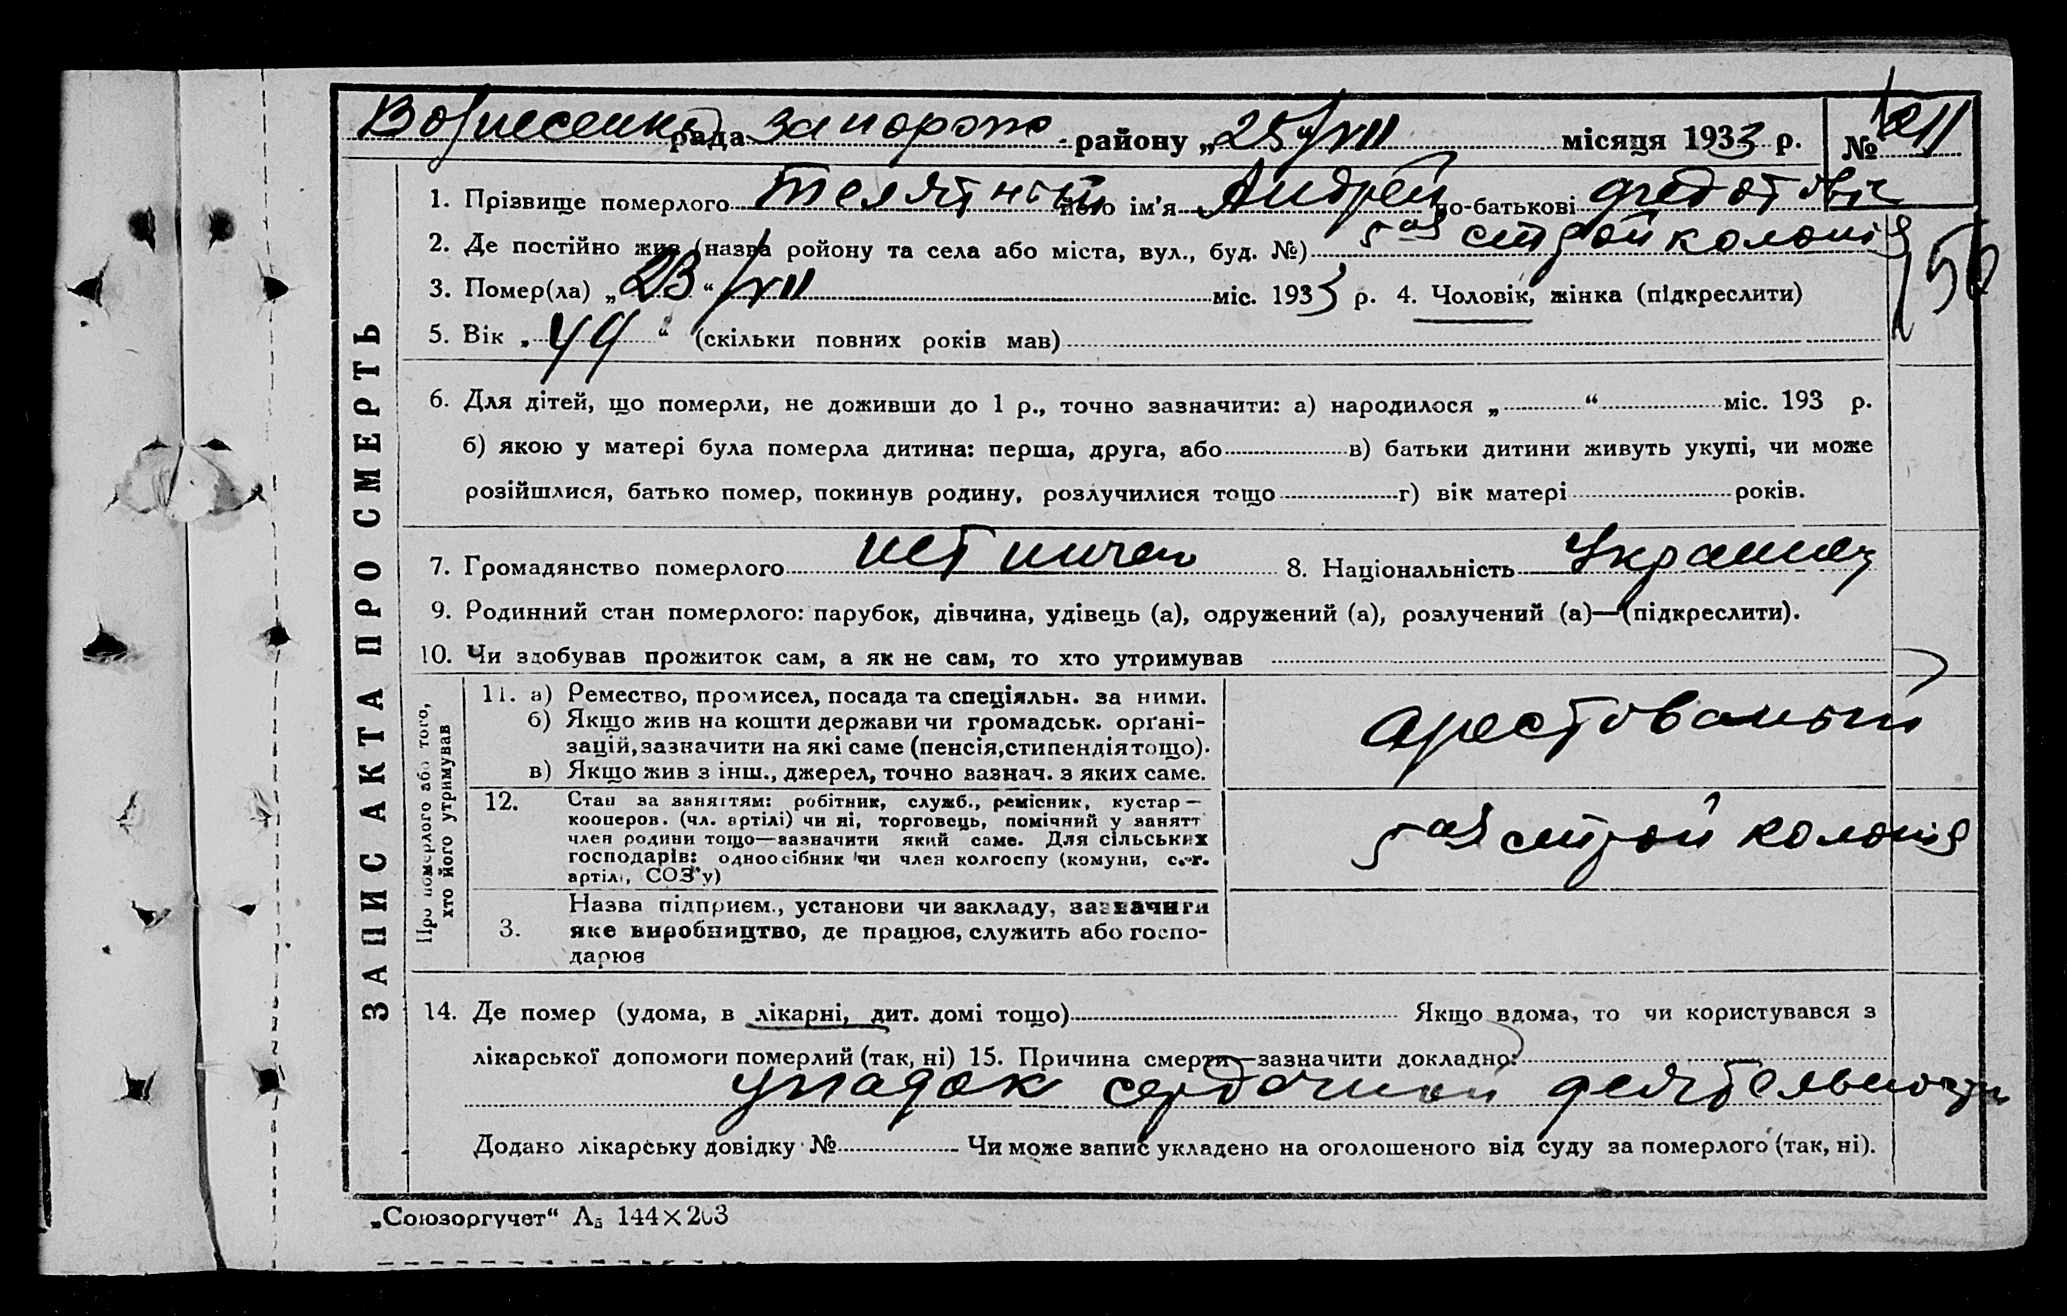 Вознесенка рада Запорож району „25/VII місяця 1933 р. № 211
1. Прізвище померлого Телятный його ім'я Андрей по-батькові Федотовіч
2. Де постійно жив (назва ройону та села або міста, вул., буд. №) 5ая строй колонія
3. Помер(ла) „23“/VII міс. 1933 р. 4. Чоловік, жінка (підкреслити)
56
5. Вік „49“ (скільки повних років мав)
6. Для дітей, що померли, не доживши до 1 р., точно зазначити: а) народилося „ “ міс. 193 р.
б) якою у матері була померла дитина: перша, друга, або в) батьки дитини живуть укупі, чи може
розійшлися, батько помер, покинув родину, розлучилися тощо г) вік матері років.
7. Громадянство померлого 8. Національність Украинец
9. Родинний стан померлого: парубок, дівчина, удівець (а), одружений (а), розлучений (а)—(підкреслити).
10. Чи здобував прожиток сам, а як не сам, то хто утримував
ЗАПИС АКТА ПРО СМЕРТЬ
Про померлого або того,
хто його утримував
11. а) Ремество, промисел, посада та спеціяльн. за ними.
б) Якщо жив на кошти держави чи громадськ. орґані-
зацій, зазначити на які саме (пенсія, стипендія тощо).
в) Якщо жив з інш., джерел, точно зазнач. з яких саме.
арестованый
12. Стан за заняттям: робітник, служб., ремісник, кустар —
кооперов. (чл. артілі) чи ні, торговець, помічний у занятт
член родини тощо—зазначити який саме. Для сільських
господарів: одноосібник чи член колгоспу (комуни, с.-г.
артілі, СОЗ'у)
5ая строй колонія
3. Назва підприєм., установи чи закладу, зазначити
яке виробництво, де працює, служить або госпо-
дарює
14. Де помер (удома, в лікарні, дит. домі тощо) Якщо вдома, то чи користувався з
лікарської допомоги померлий (так, ні) 15. Причина смерти—зазначити докладно:
упадок сердечной деятельности
Додано лікарську довідку № Чи може запис укладено на оголошеного від суду за померлого (так, ні).
„Союзоргучет“ А5 144×203